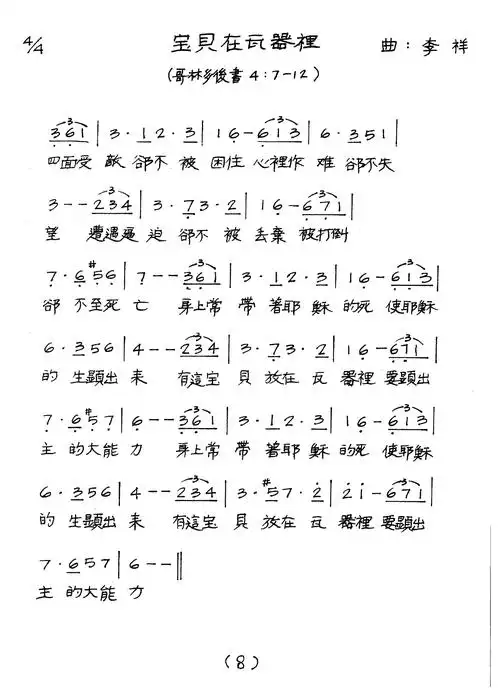 4/4 宝貝在瓦器裡 曲：李祥
(哥林多後書 4:7-12)
361 | 3·12·3 | 16-613 | 6·351 |
四面受 敵 卻不 被 困住 心裡作 难 卻不失
3--234 | 3·73·2 | 16-671 |
望 遭遇逼 迫 卻不 被 丢棄 被打倒
7·6#56 | 7--361 | 3·12·3 | 16-613 |
卻 不至死 亡 身上常 帶 著耶 穌 的死 使耶穌
6·356 | 4--234 | 3·73·2 | 16-671 |
的 生顕出 来 有這宝 貝 放在 瓦 器裡 要顕出
7·6#57 | 6--361 | 3·12·3 | 16-613 |
主 的大能 力 身上常 帶 著耶 穌 的死 使耶穌
6·356 | 4--234 | 3·#57·2 | 2i-671 |
的 生顕出 来 有這宝 貝 放在 瓦 器裡 要顕出
7·657 | 6-- ||
主 的大能 力
(8)